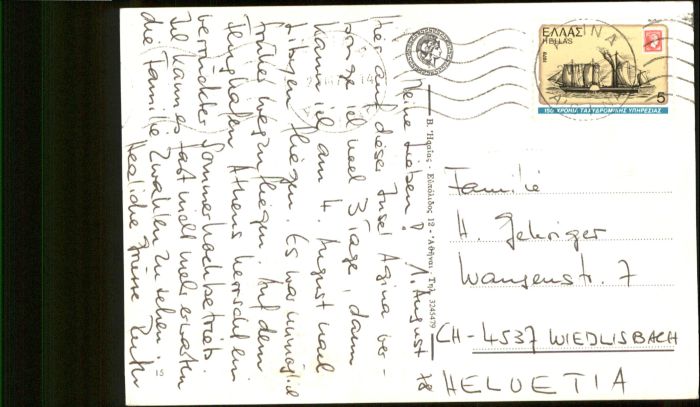 Meine Lieben! 1. August 78
Hier auf dieser Insel Ägina ver-
bringe ich noch 3 Tage, dann
kann ich am 4. August nach
Libyen fliegen. Es war unmöglich
früher wegzufliegen. Auf dem
Flughafen Athens herrscht ein
verrückter Sommerhochbetrieb.
Ich kann es fast nicht mehr erwarten
die Familie Zwahlen zu sehen.
Herzliche Grüsse
15
Β. Ἡσαΐας - Εὐπόλιδος 12 - Ἀθῆναι - Τηλ. 3245479
ΕΛΛΑΣ
HELLAS
1978
5
150 ΧΡΟΝΙΑ ΤΑΧΥΔΡΟΜΙΚΗΣ ΥΠΗΡΕΣΙΑΣ
Familie
H. Gehriger
Wangenstr. 7
CH - 4537 WIEDLISBACH
HELVETIA